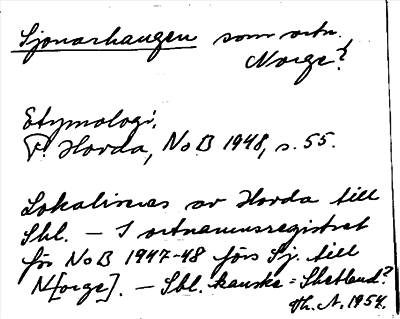 Sjonarhaugen som ortn.
Norge?
Etymologi.
P. Horda, NoB 1948, s. 55.
Lokaliseras av Horda till
Shl. – I ortnamnsregistret
för NoB 1947-48 förs Sj. till
N[orge]. – Shl. kanske = Shetland?
Th. A. 1954.